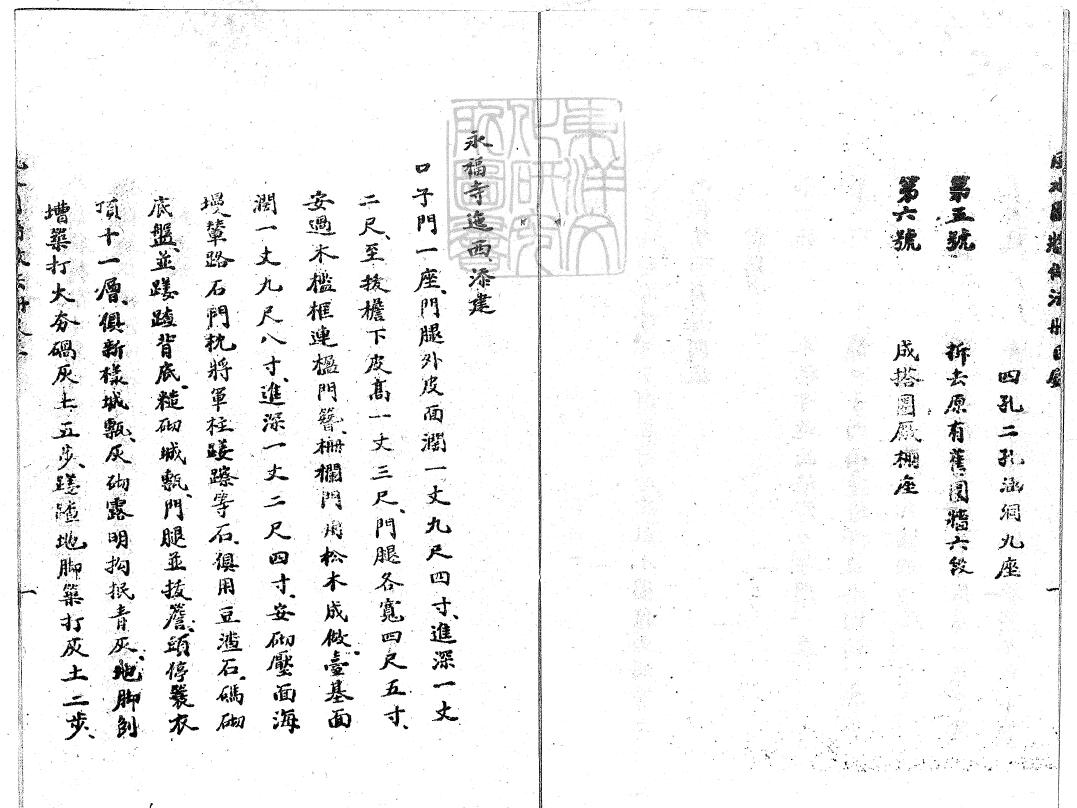 四孔二孔涵洞九座
第五號 拆去原有舊圍牆六段
第六號 成搭圈厰棚座
一
永福寺迤西添建
口子門一座、門腿外皮面濶一丈九尺四寸、進深一丈
二尺、至拔檐下皮高一丈三尺、門腿各寬四尺五寸、
安過木檻框連楹門簪、柵欄門用松木成做、臺基面
濶一丈九尺八寸、進深一丈二尺四寸、安砌壓面海
墁輦路石門枕將軍柱䃬䃰等石、俱用豆渣石、碼砌
底盤、並䃬䃰背底、糙砌城甎、門腿並拔簷、頭停襲衣
頂十一層、俱新樣城甎、灰砌露明抅抿青灰、地脚刨
槽築打大夯碢灰土五步、䃬䃰地脚築打灰土二步、
一
東洋文化研究所圖書